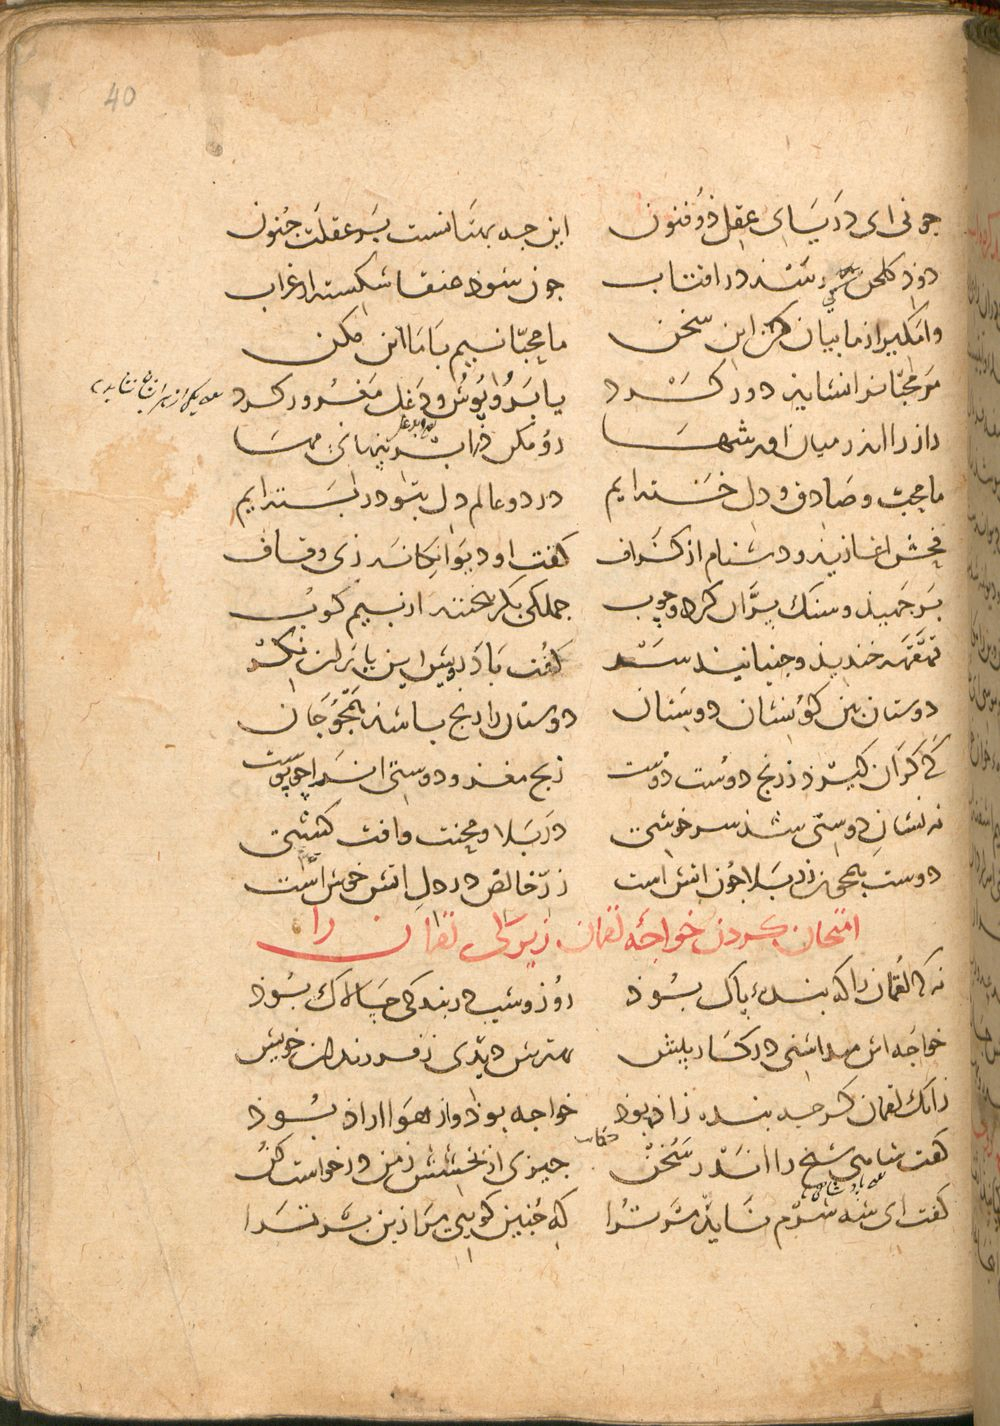 40
چونی ای دریای عقل ذو فنون این چه بهتانست بر عقلت جنون
دود گلخن کی رسد در افتاب چون شود عنقا شکسته از غراب
وا مگیر از ما بیان کن این سخن ما محبانیم با ما این مکن
مر محبانرا نشاید دور کرد یا بروپوش و دغل مغرور کرد
راز را اندر میان اور شها رو مکن در ابر پنهانی مها
ما محب و صادق و دل خسته ایم در دو عالم دل بتو در بسته ایم
فحش اغازید و دشنام از گزاف گفت او دیوانگانه زی و قاف
بر جهید و سنگ پران کرد و چوب جملگی بگریختند از بیم کوب
قهقهه خندید و جنبانید سر گفت باد ریش این یاران نگر
دوستان بین کو نشان دوستان دوستان را رنج باشد همچو جان
کی کران گیرد ز رنج دوست دوست رنج مغز و دوستی انرا چو پوست
نه نشان دوستی شد سرخوشی در بلا و محنت و افت کشی
دوست همچون زر بلا چون اتش است زر خالص در دل اتش خوش است
امتحان کردن خواجه لقمان زیرکی لقمان را
نه که لقمان را که بنده پاک بود روز و شب در بندگی چالاک بود
خواجه اش می داشتی در کار پیش بهترش دیدی ز فرزندان خویش
زانک لقمان گرچه بنده زاد بود خواجه بود و از هوا ازاد بود
حکایت
گفت شاهی شیخ را اندر سخن چیزی از بخشش ز من درخواست کن
گفت ای شه شرم ناید مر ترا که چنین گویی مرا زین برتر ا